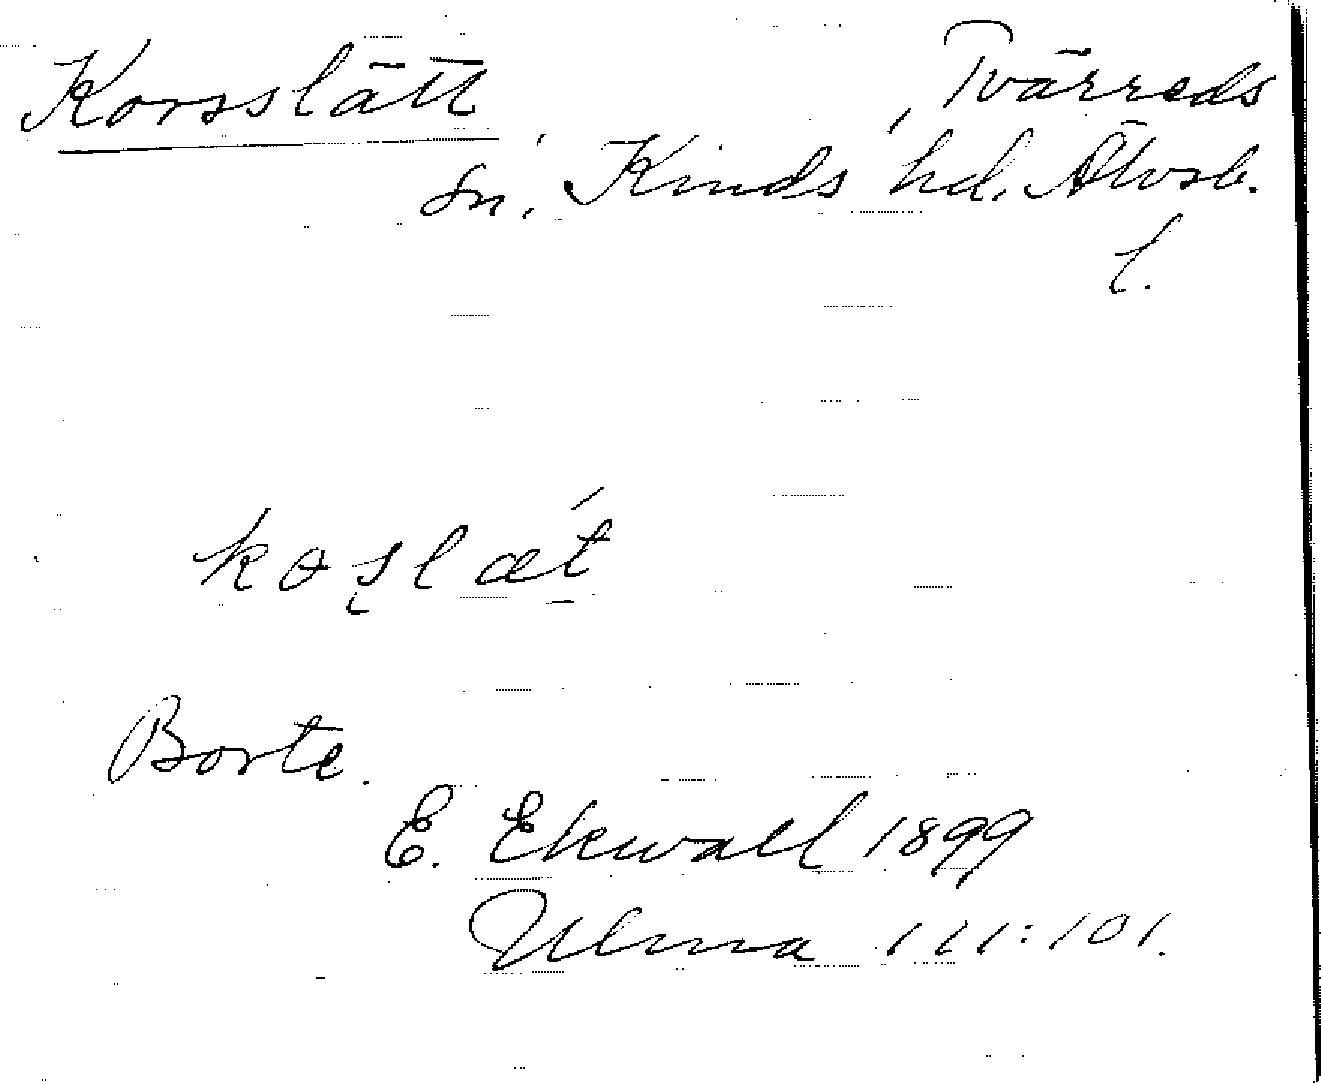 Korsslätt
Tvärreds
sn, Kinds hd. Älvsb.
l.
koʂlæt́
Borte.
E. Ekwall 1899
Ulma 111:101.